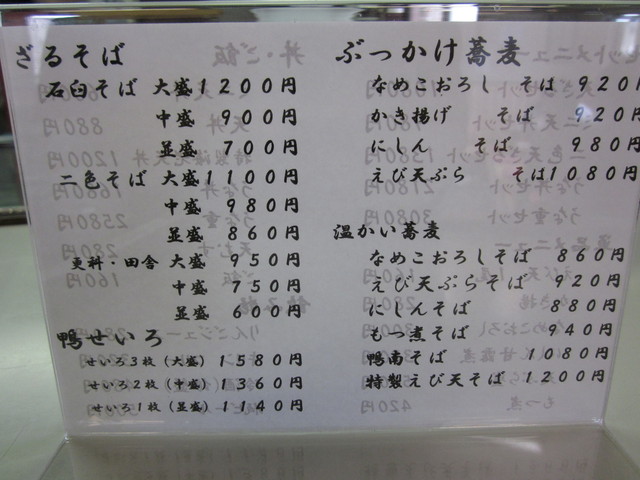 ざるそば
石臼そば 大盛1200円
中盛 900円
並盛 700円
二色そば 大盛1100円
中盛 980円
並盛 860円
更科・田舎 大盛 950円
中盛 750円
並盛 600円
鴨せいろ
せいろ3枚(大盛) 1580円
せいろ2枚(中盛) 1360円
せいろ1枚(並盛) 1140円
ぶっかけ蕎麦
なめこおろし そば 920円
かき揚げ そば 920円
にしん そば 980円
えび天ぷら そば1080円
温かい蕎麦
なめこおろしそば 860円
えび天ぷらそば 920円
にしんそば 880円
もつ煮そば 940円
鴨南そば 1080円
特製えび天そば 1200円